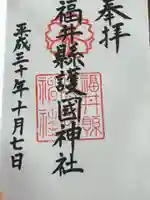 奉拝
福井縣護國神社
平成三十年十月七日
福井縣